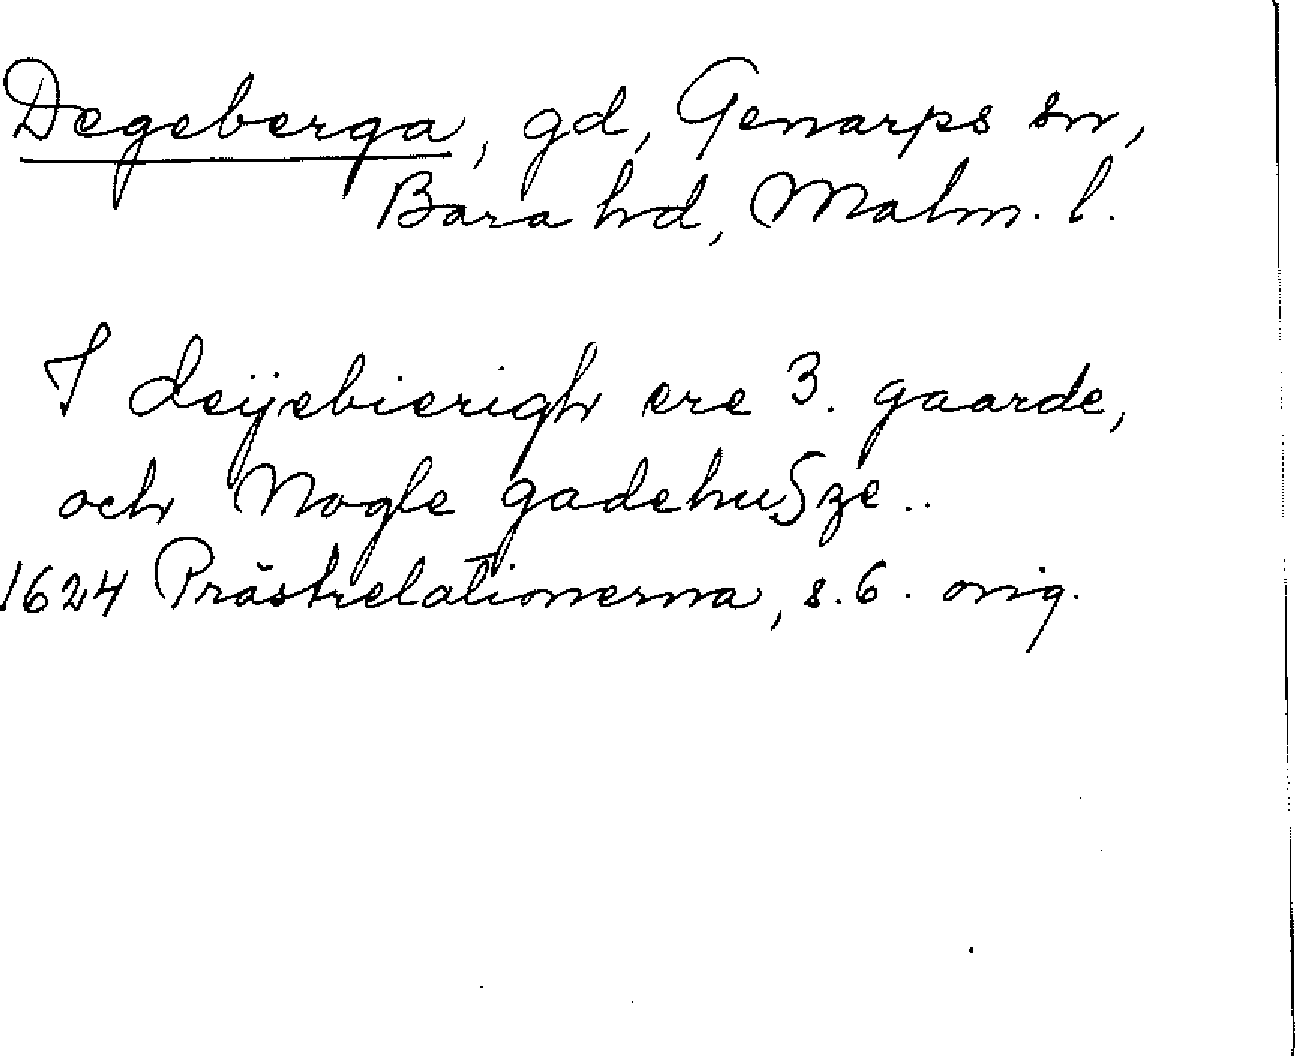 Degeberga, gd, Genarps sn,
Bara hd, Malm. l.
I deijebierigh ere 3. gaarde,
och Nogle gadehuSze..
1624 Prästrelationerna, s. 6. orig.